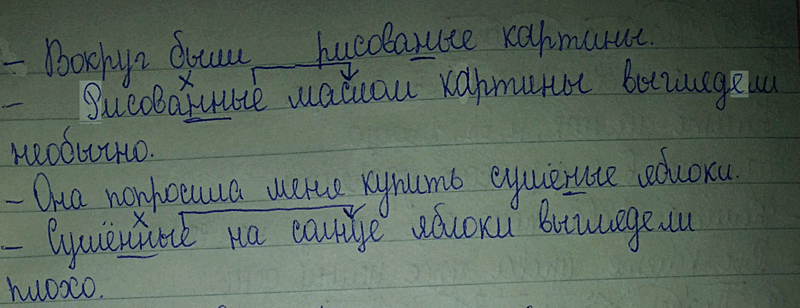 - Вокруг были рисованые картины.
- Рисованные маслом картины выглядели
необычно.
- Она попросила меня купить сушёные яблоки.
- Сушённые на солнце яблоки выглядели
плохо.